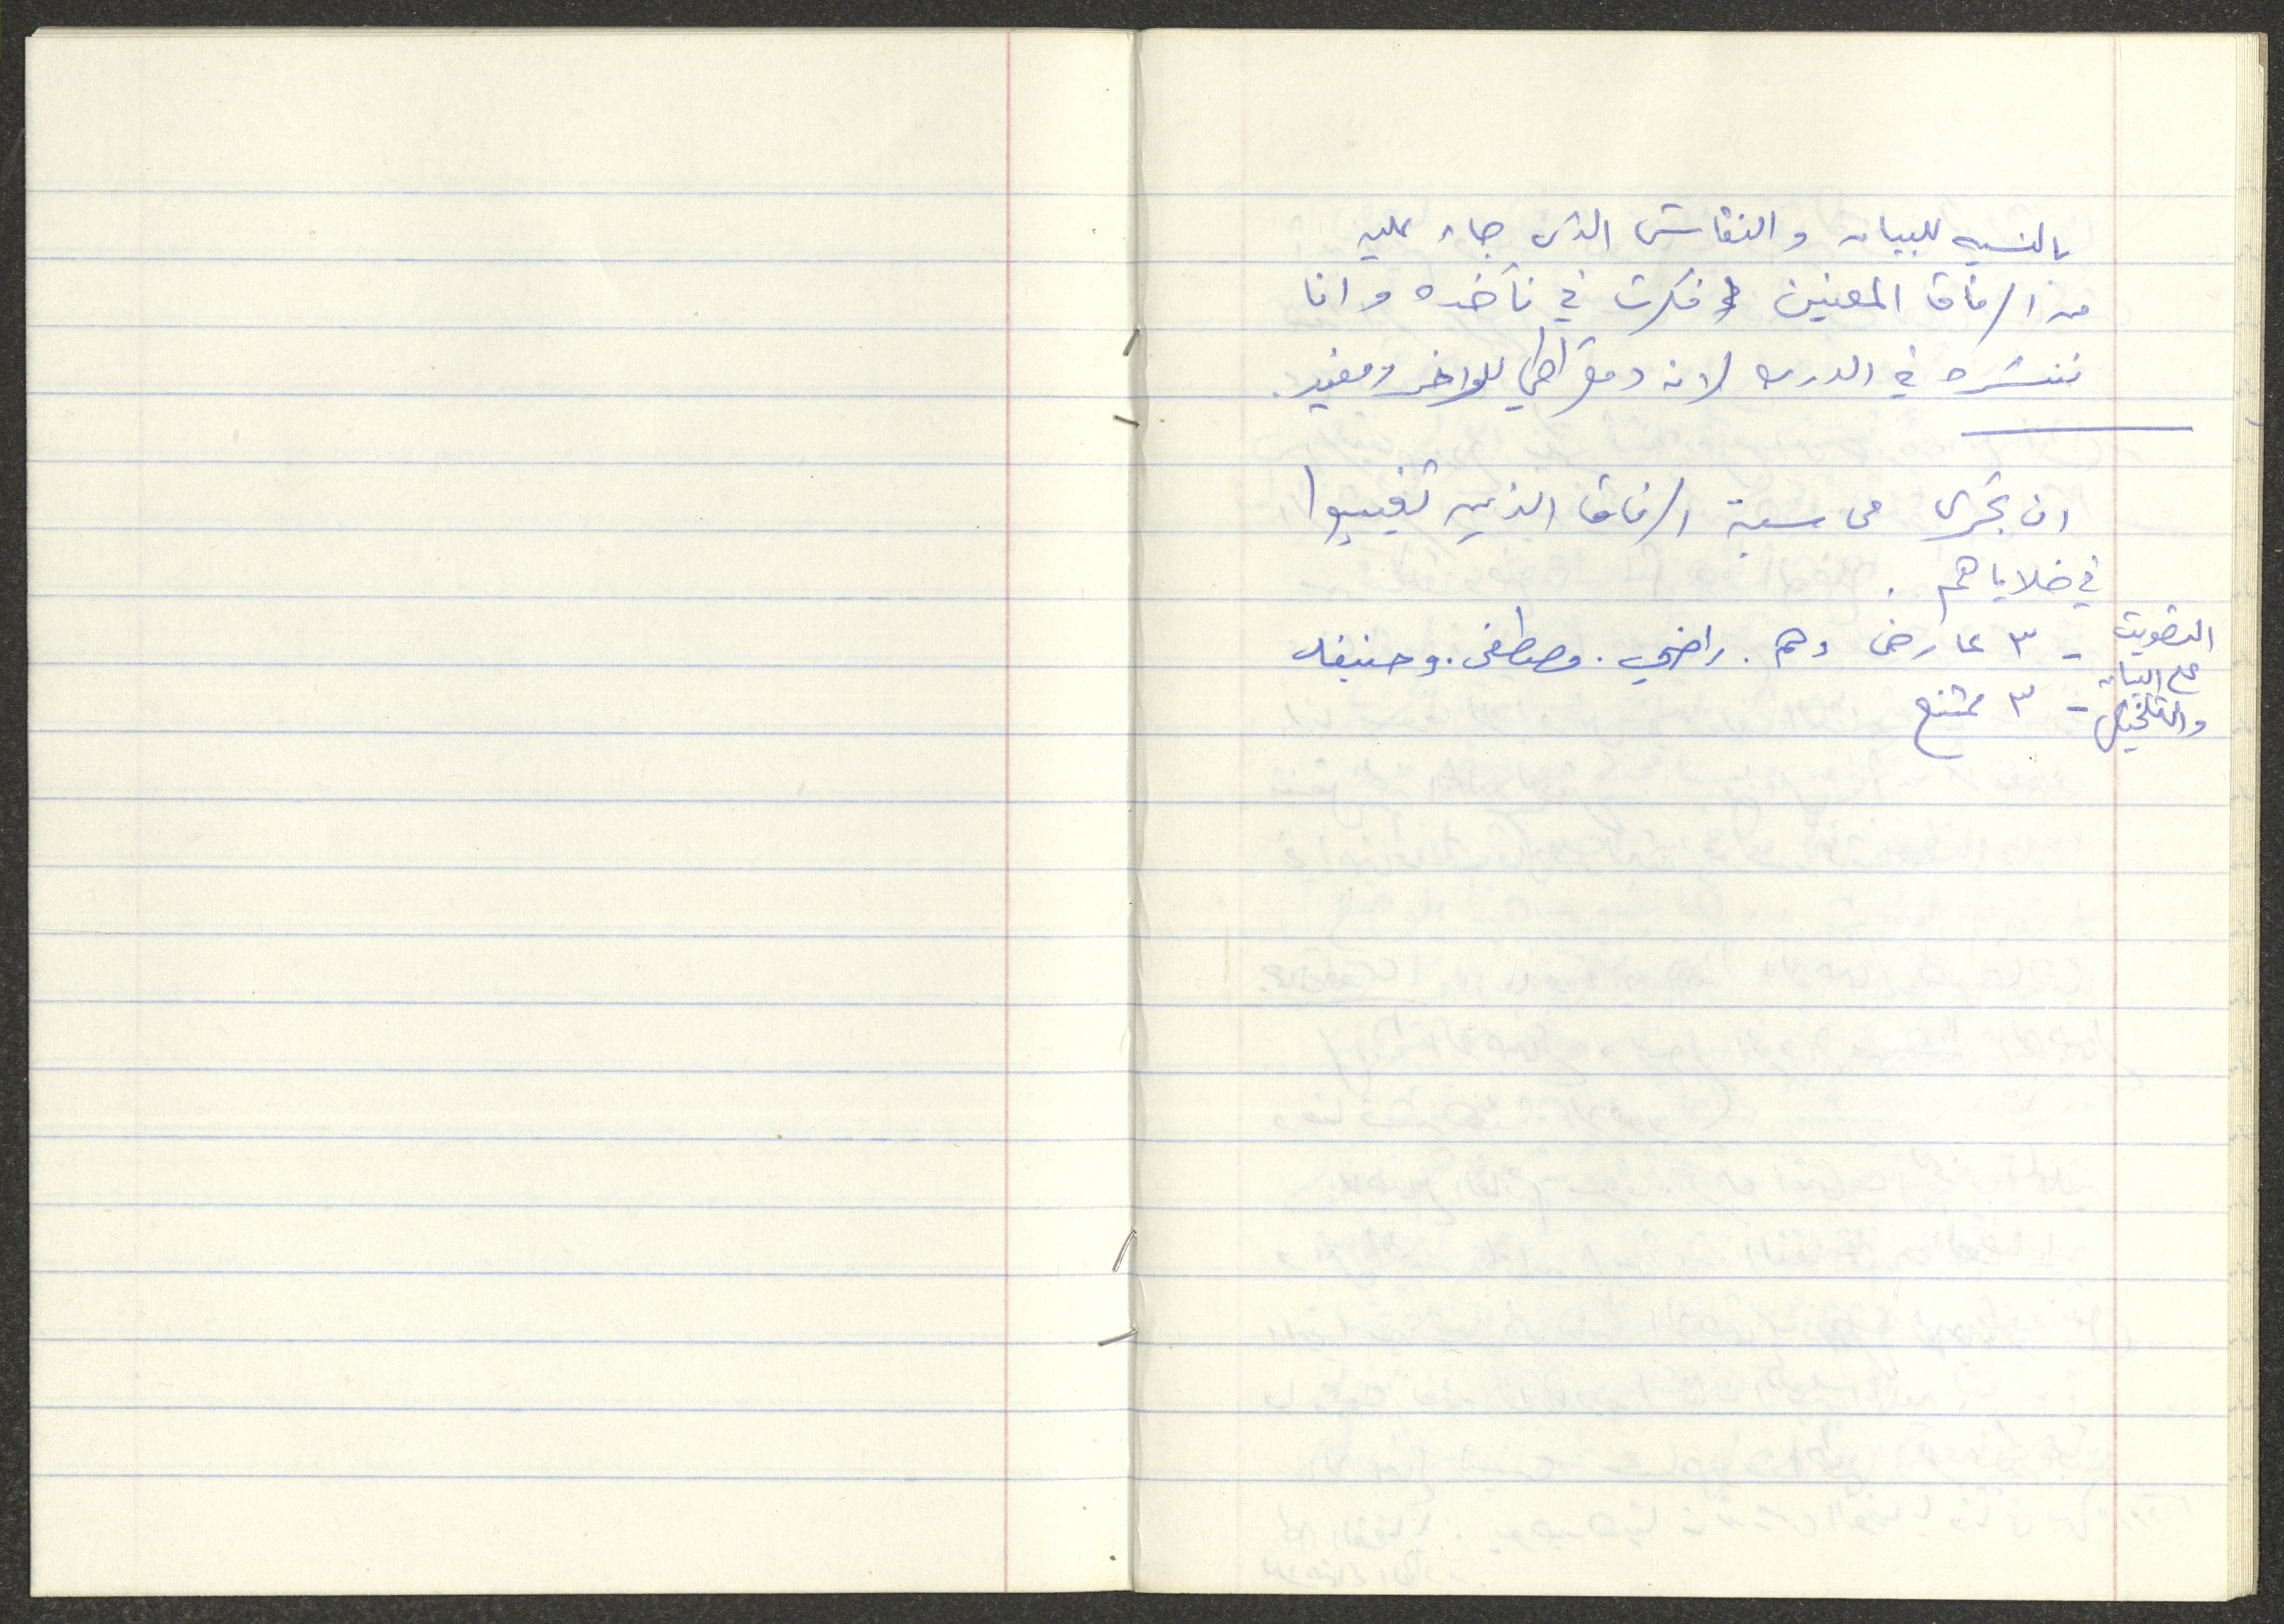 بالنسبه للبيان والنقاش الذي جاء عليه
من الرفاق المعنين فكرت في نأخده وانا
ننشره في الدرب لانه دمقراطي للواخر ومفيد.
ان تجرى محاسبة الرفاق الذين تغيبوا
في خلاياهم.
التصويت
على البيان
والتلخيص
- ٣ عارض وهم. راضي. مصطفى. وحنيفه
- ٣ ممتنع